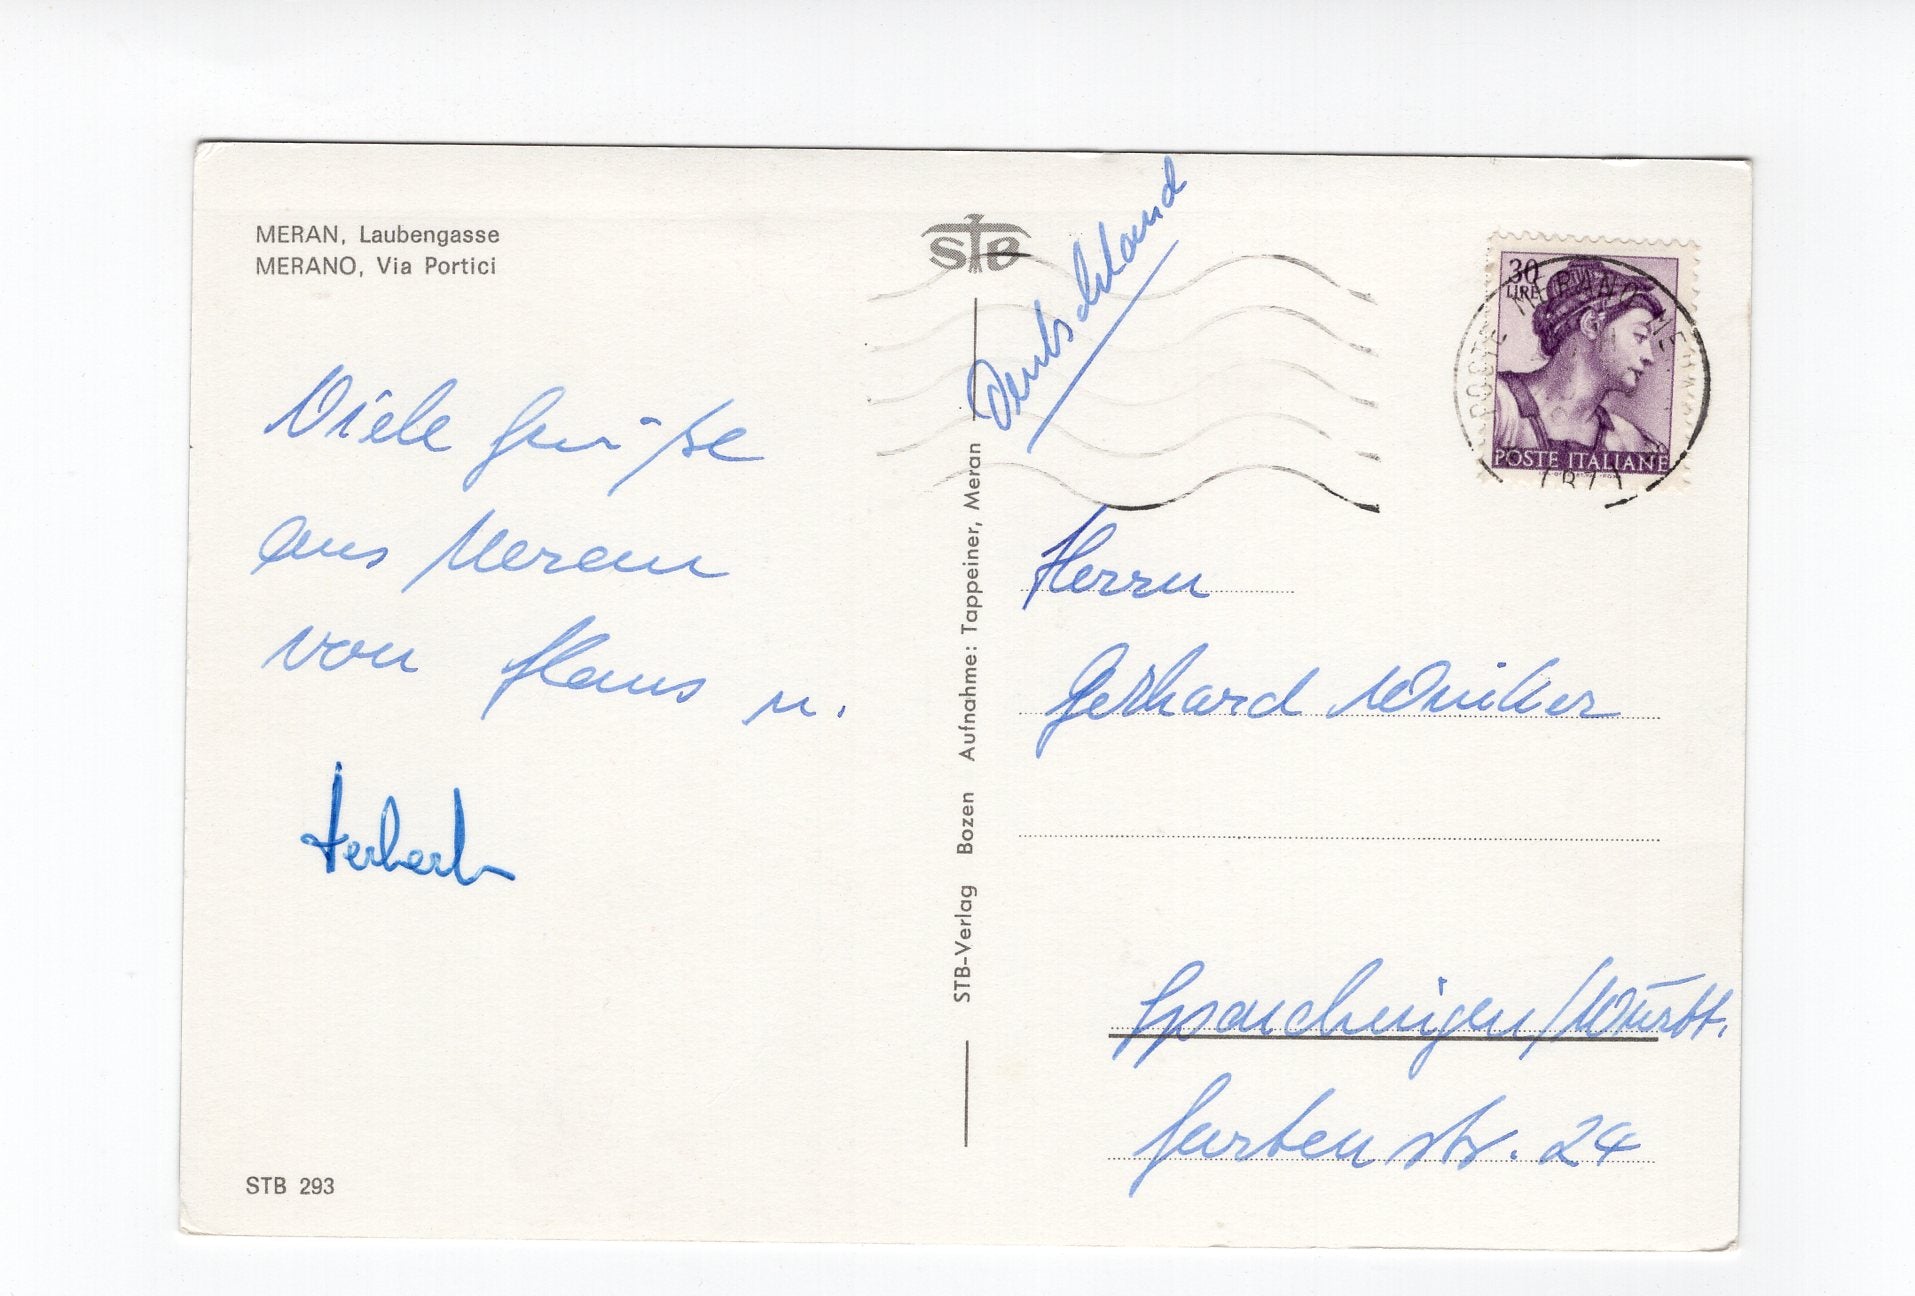 MERAN, Laubengasse
MERANO, Via Portici
Viele Grüße
aus Meran
von Klaus u.
Herbert
STB 293
STB
STB-Verlag Bozen Aufnahme: Tappeiner, Meran
Deutschland
30
LIRE
POSTE ITALIANE
POSTE MERANO
Herrn
Gerhard Winker
Spaichingen/Württ.
Gartenstr. 24